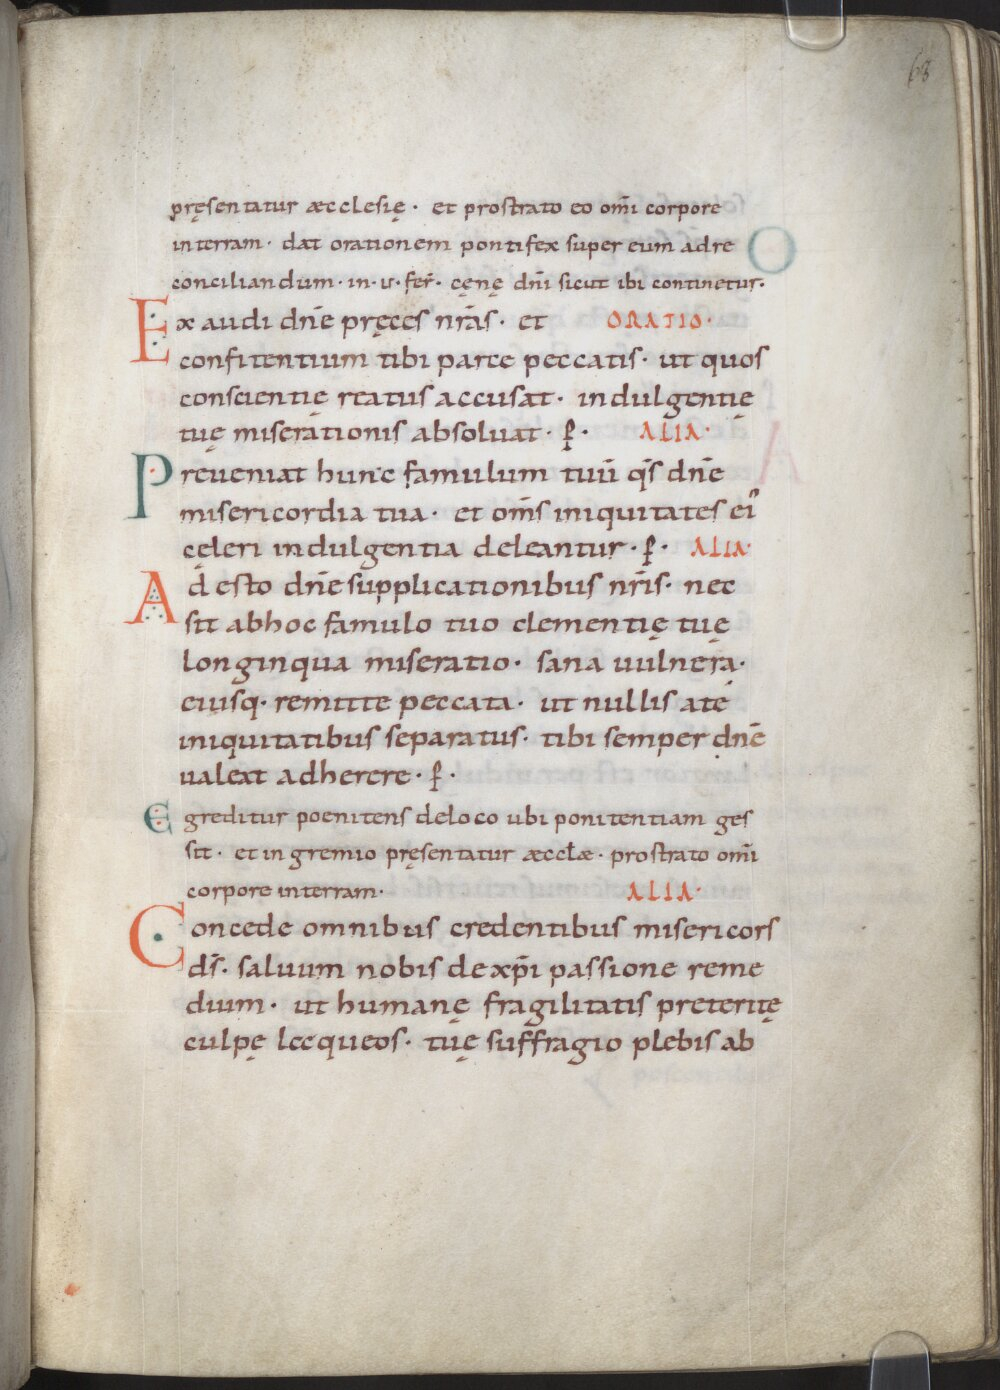 63
pręsentatur æcclesię · et prostrato eo om̄i corpore
interram · dat orationem pontifex super eum adre
conciliandum · in · v · fer̄ · cęnę dn̄i sicut ibi continetur ·
Exaudi dn̄e pręces nr̄as · et ORATIO ·
confitentium tibi parce peccatis · ut quos
conscientię reatus accusat · indulgentię
tuę miserationis absoluat · p̄ · ALIA ·
Preueniat hunc famulum tuū qs̄ dn̄e
misericordia tua · et om̄s iniquitates ei᾽
cęleri indulgentia deleantur · p̄ · ALIA ·
Adesto dn̄e supplicationibus nr̄is · nec
sit abhoc famulo tuo clementię tuę
longinqua miseratio · sana uulnera ·
eiusq · remitte peccata · ut nullis ate
iniquitatibus separatus · tibi semper dn̄e
ualeat adherere · p̄ ·
Egreditur poenitens deloco ubi ponitentiam ges
sit · et in gremio pręsentatur æccłæ · prostrato om̄i
corpore interram · ALIA ·
Concede omnibus credentibus misericors
ds̄ · saluum nobis de xp̄i passione reme
dium · ut humanę fragilitatis preteritę
culpę lęqueos · tuę suffragio plebis ab